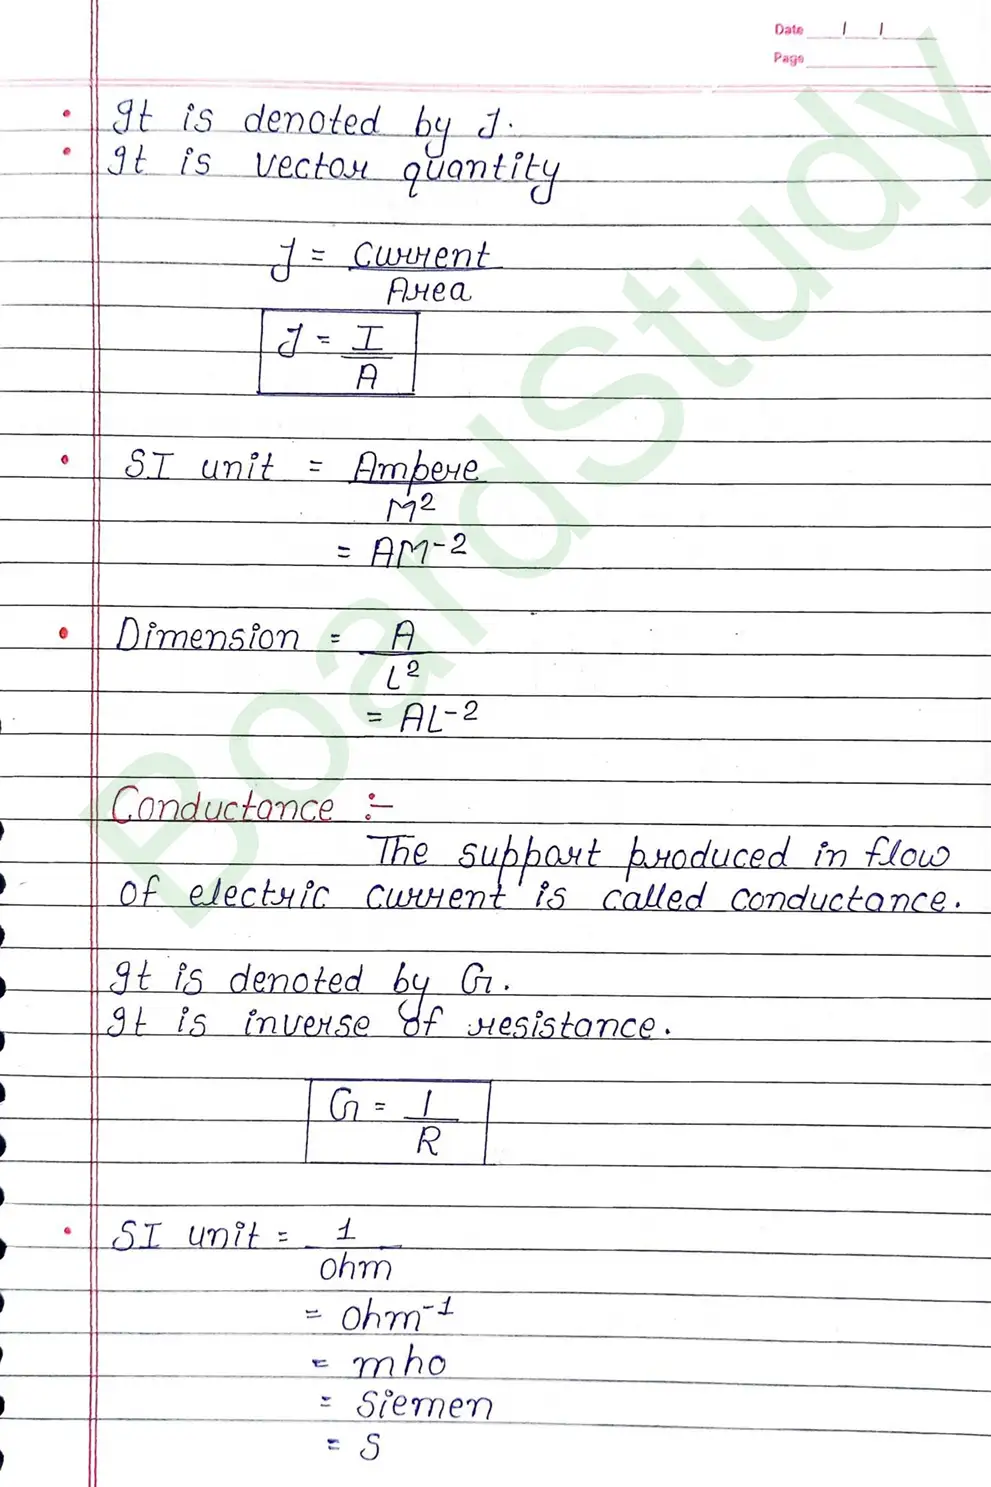 Date / /
Page
It is denoted by J.
It is vector quantity
J = Current
Area
J = I
A
SI unit = Ampere
M²
= AM⁻²
Dimension = A
L²
= AL⁻²
Conductance :-
The support produced in flow
of electric current is called conductance.
It is denoted by G.
It is inverse of resistance.
G = 1
R
SI unit = 1
ohm
= ohm⁻¹
= mho
= Siemen
= S
BoardStudy